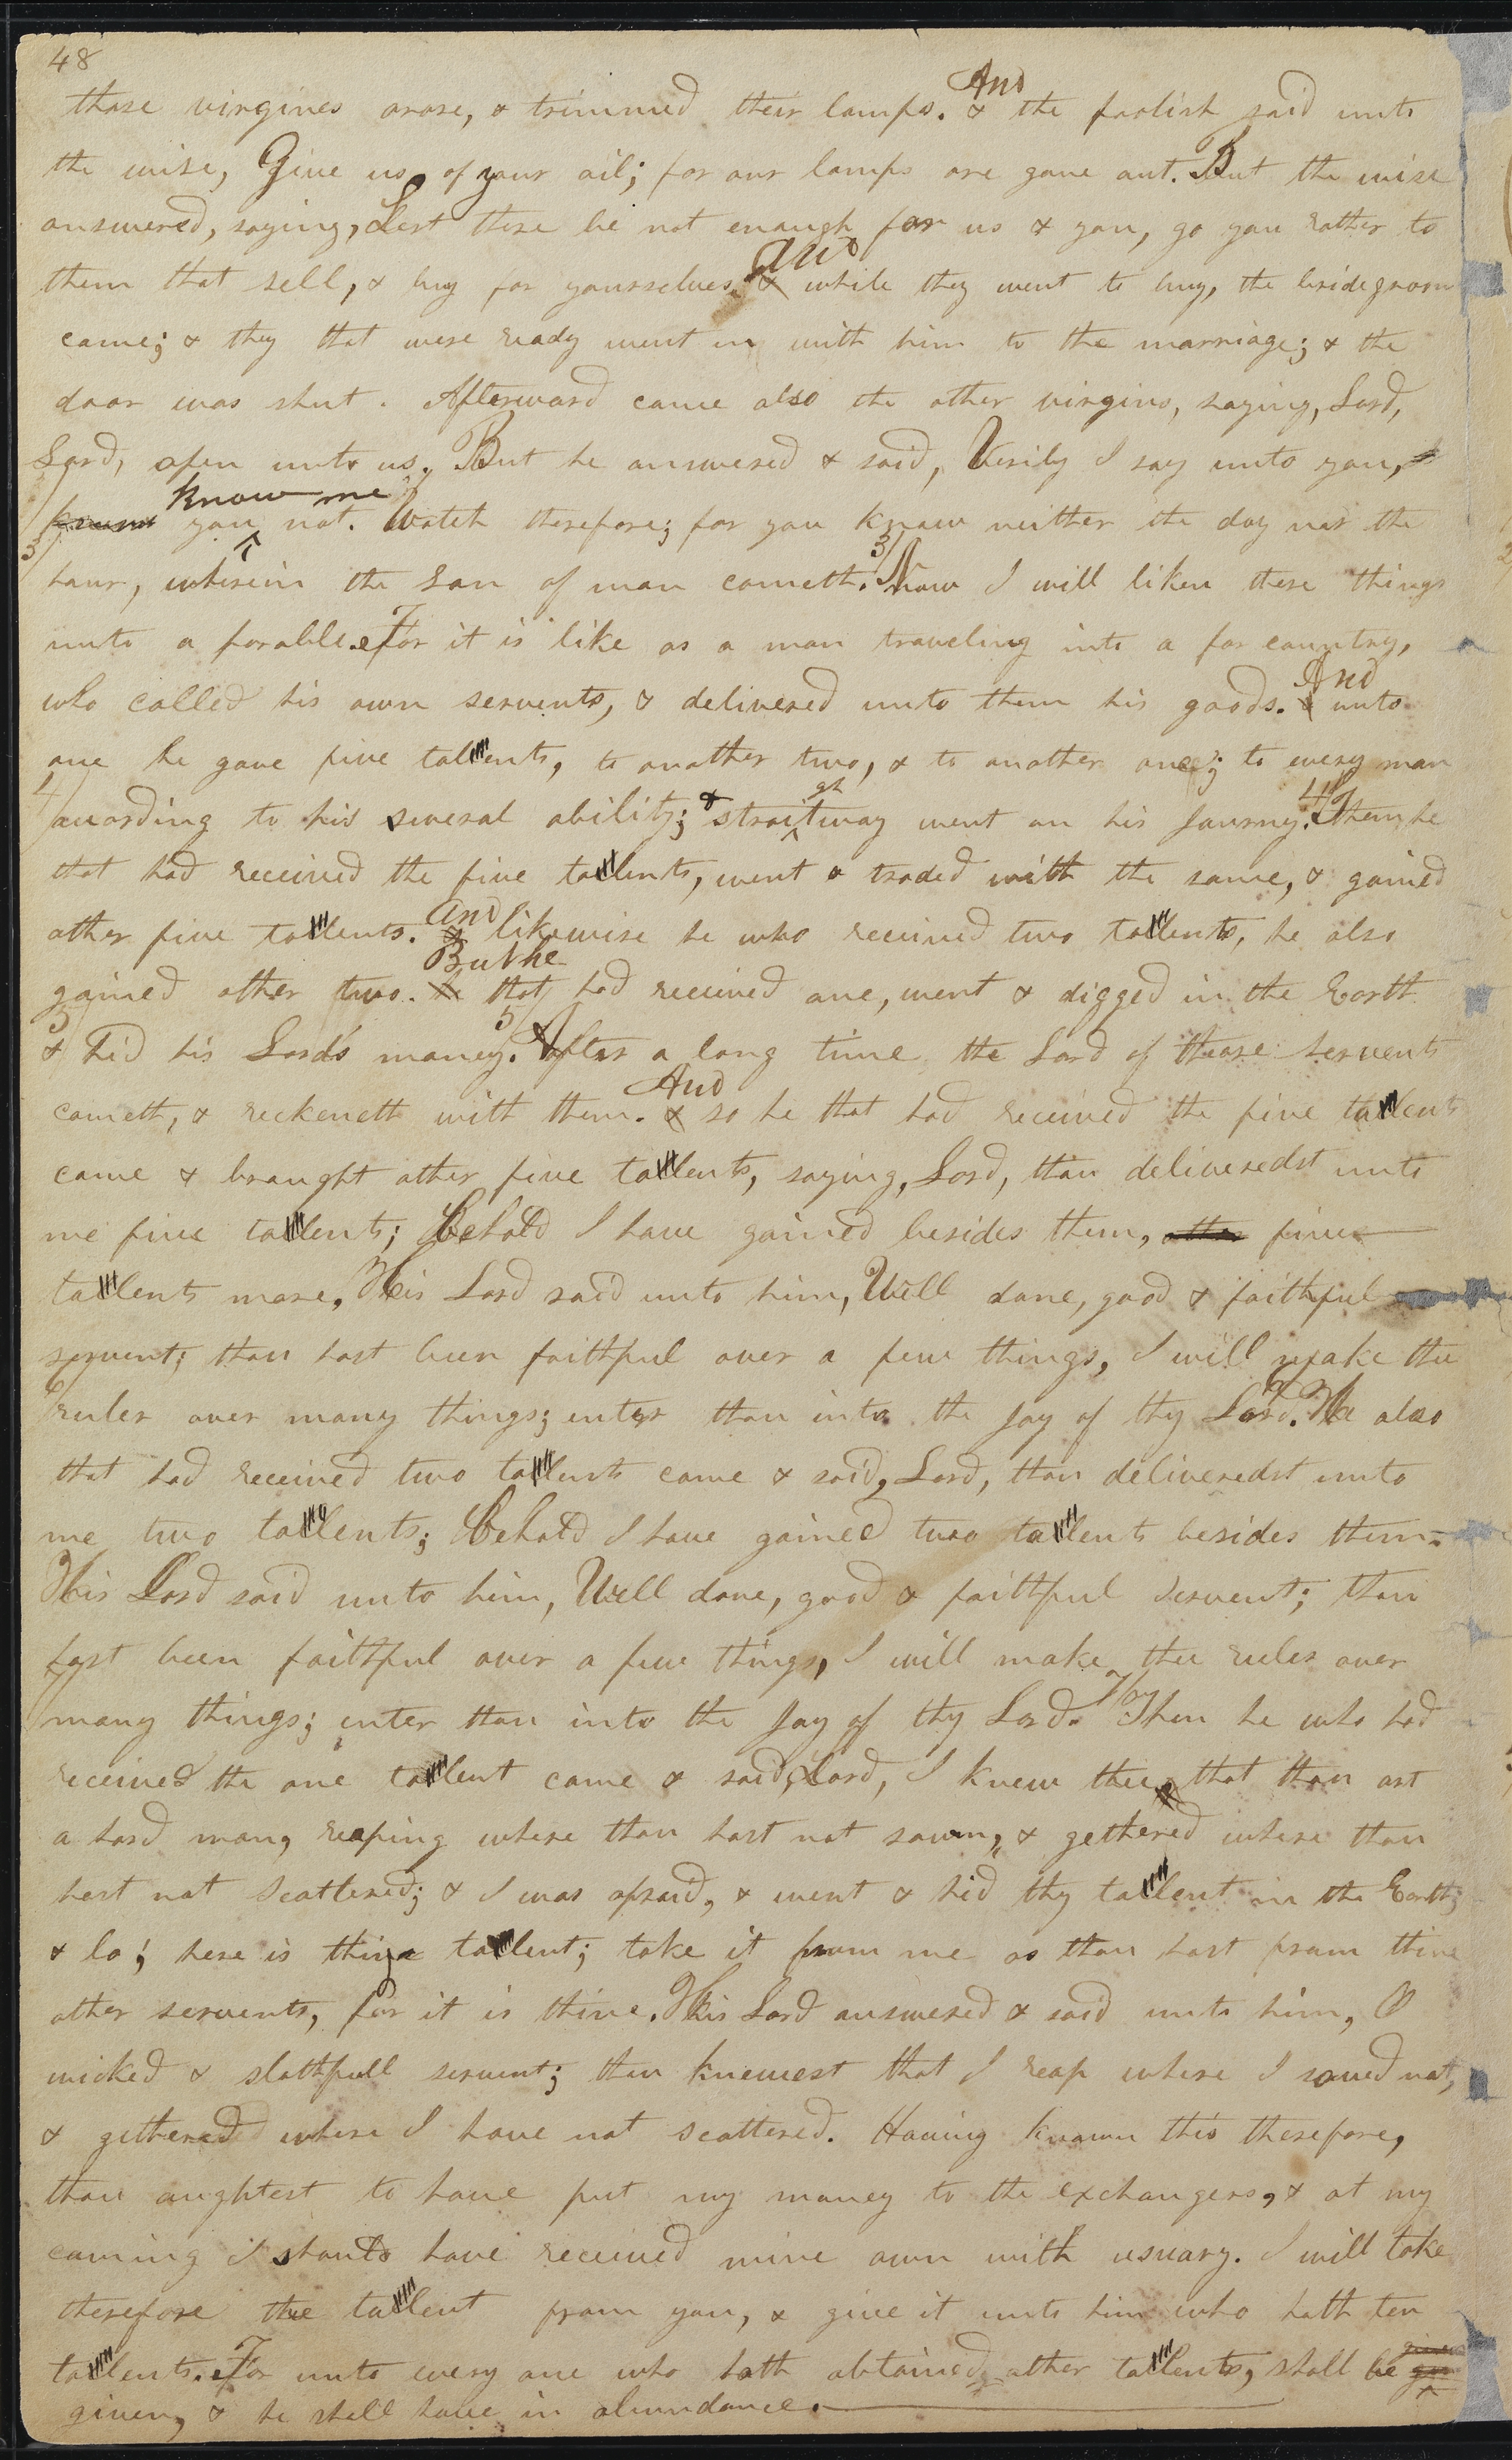 48
those virgines arose, & trimmed their lamps. And & the foolish said unto
the wise, Give us of your oil; for our lamps are gone out. But the wise
answered, saying, Lest there be not enough for us & you, go you rather to
them that sell, & buy for yourselves. And & while they went to buy, the bridegroom
came; & they that were ready went in with him to the marriage; & the
door was shut. Afterward came also the other virgins, saying, Lord,
Lord, open unto us. But he answered & said, Verily I say unto you, I
know me
know you not. Watch therefore; for you know neither the day nor the
3/ hour, wherein the son of man cometh. 3/ Now I will liken these things
unto a parable. For it is like as a man traveling into a far country,
who called his own servents, & delivered unto them his goods. And & unto
one he gave five tallents, to another two, & to another one; to every man
4/ according to his several ability; & straitgtway went on his Journey. 4/ Then he
that had received the five tallents, went & traded with the same, & gained
other five tallents. And & likewise he who received two tallents, he also
gained other two. But he he that had received one, went & digged in the Earth
5/ & hid his Lord's money. 5/ After a long time the Lord of those servents
cometh, & reckeneth with them. And & so he that had received the five tallents
came & brought other five tallents, saying, Lord, thou deliveredst unto
me five tallents; Behold I have gained besides them, other five
tallents more, His Lord said unto him, Well done, good & faithful
servent; thou hast been faithful over a few things, I will make the
6/ ruler over many things; enter thou into the Joy of thy Lord. 6/ He also
that had received two tallents came & said, Lord, thou deliveredst unto
me two tallents; Behold I have gained two tallents besides them.
His Lord said unto him, Well done, good & faithful servent; thou
hast been faithful over a few things, I will make thee ruler over
7/ many things; enter thou into the Joy of thy Lord. 7/ Then he who had
received the one tallent came & said, Lord, I knew thee that thou art
a hard man, reaping where thou hast not sown, & gethered where thou
hast not scattered; & I was afraid, & went & hid thy tallent in the Earth;
& lo, here is thine tallent; take it from me as thou hast from thine
other servents, for it is thine. His Lord answered & said unto him, O
wicked & slothfull servent; thou knewest that I reap where I sowed not,
& gethered where I have not scattered. Having known this therefore,
thou oughtest to have put my money to the exchangers, & at my
coming I should have received mine own with usuary. I will take
therefore the tallent from you, & give it unto him who hath ten
tallents. For unto every one who hath obtained other tallents, shall be given
given, & he shall have in abundance.